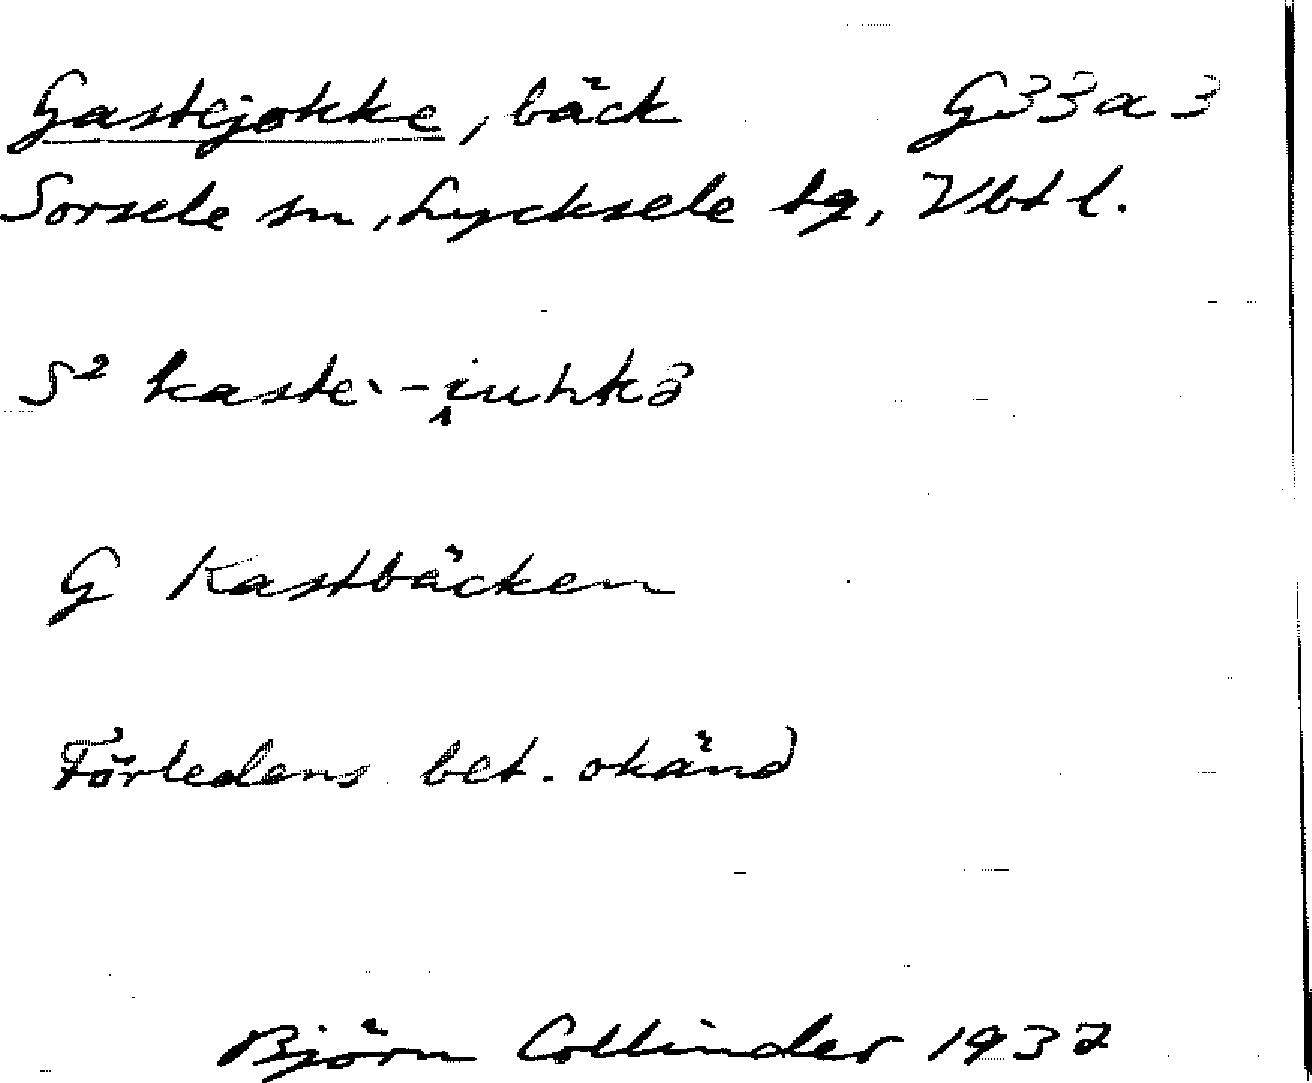 Gastejokke, bäck G33a3
Sorsele sn, Lycksele tg, Vbtl.
S² kasteˋ-i̭uhkə̑
G Kastbäcken
Förledens bet. okänd
Björn Collinder 1937